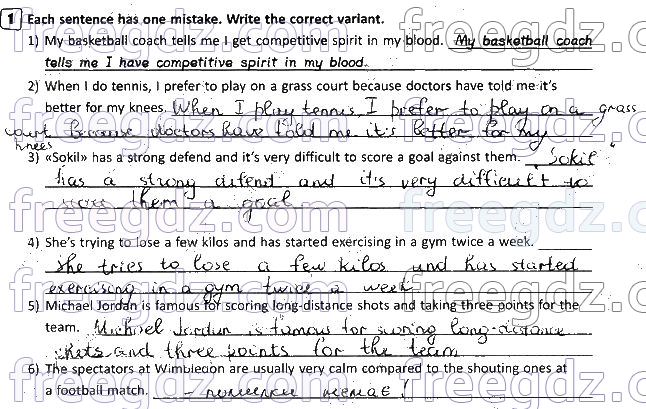 1 Each sentence has one mistake. Write the correct variant.
1) My basketball coach tells me I get competitive spirit in my blood. My basketball coach
tells me I have competitive spirit in my blood.
2) When I do tennis, I prefer to play on a grass court because doctors have told me it's
better for my knees. When I play tennis, I prefer to play on a grass
court because doctors have told me it's better for my
knees
3) «Sokil» has a strong defend and it's very difficult to score a goal against them. Sokil
has a strong defend and it's very difficult to
them a goal
4) She's trying to lose a few kilos and has started exercising in a gym twice a week.
She tries to lose a few kilos and has started
exercising in a gym twice a week
5) Michael Jordan is famous for scoring long-distance shots and taking three points for the
team. Michael Jordan is famous for scoring long-distance
shots and three points for the team
6) The spectators at Wimbledon are usually very calm compared to the shouting ones at
a football match. - помилки немає!
freegdz.com